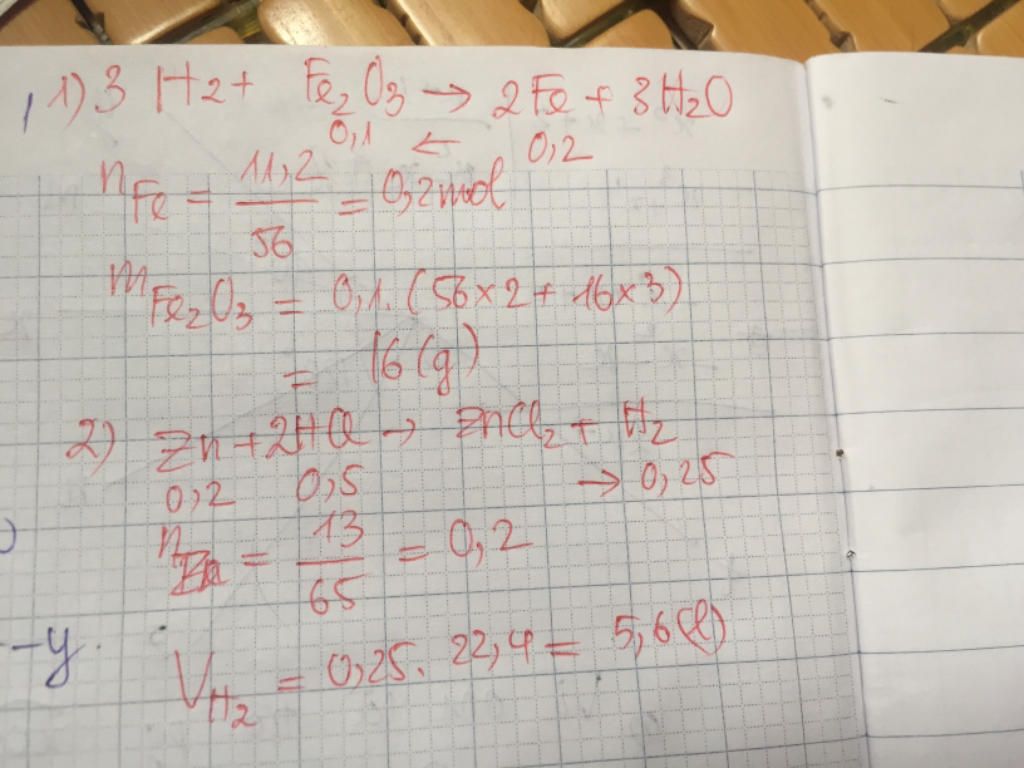 1) 3 H2 + Fe2O3 → 2Fe + 3H2O
0,1 ← 0,2
nFe = 11,2 / 56 = 0,2 mol
mFe2O3 = 0,1. (56 x 2 + 16 x 3)
= 16 (g)
2) Zn + 2HCl → ZnCl2 + H2
0,2 0,5 → 0,25
nZn = 13 / 65 = 0,2
VH2 = 0,25. 22,4 = 5,6 (l)
--y.